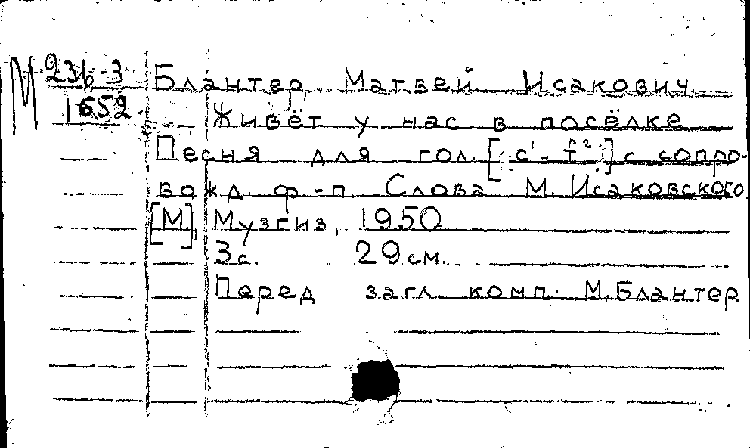 М 236-3 Блантер Матвей Исакович
1652 Живёт у нас в посёлке
Песня для гол. [c¹-f²] с сопро-
вожд. ф.-п. Слова М. Исаковского
[М], Музгиз, 1950
3с. 29 см.
Перед загл. комп. М. Блантер